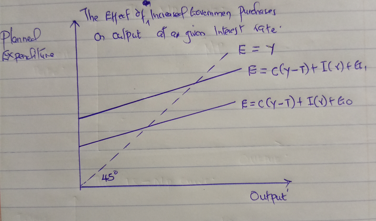 The Effect of Increased Government purchases
on output at a given Interest rate.
Planned
Expenditure
E = Y
E = C(Y-T) + I(r) + G1
E = C(Y-T) + I(r) + G0
45°
Output